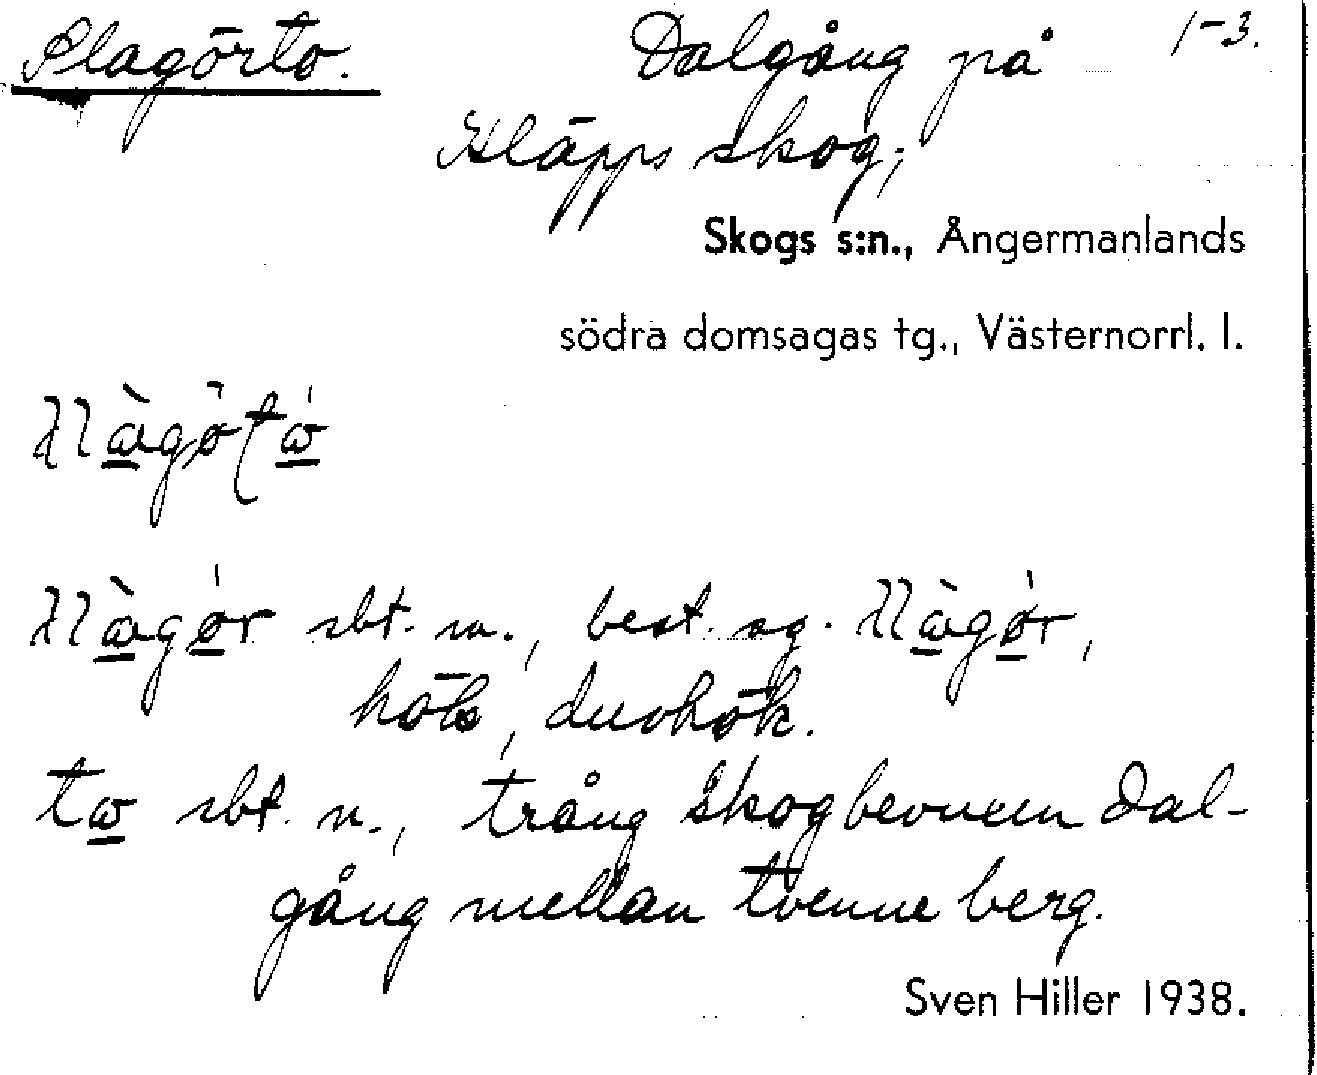 Slagörto. Dalgång på 1-3.
Kläpps skog;
Skogs s:n., Ångermanlands
södra domsagas tg., Västernorrl. l.
sbt. m., best. sg.
hök, duvhök.
tω sbt. n., trång skogbevuxen dal-
gång mellan tvenne berg.
Sven Hiller 1938.